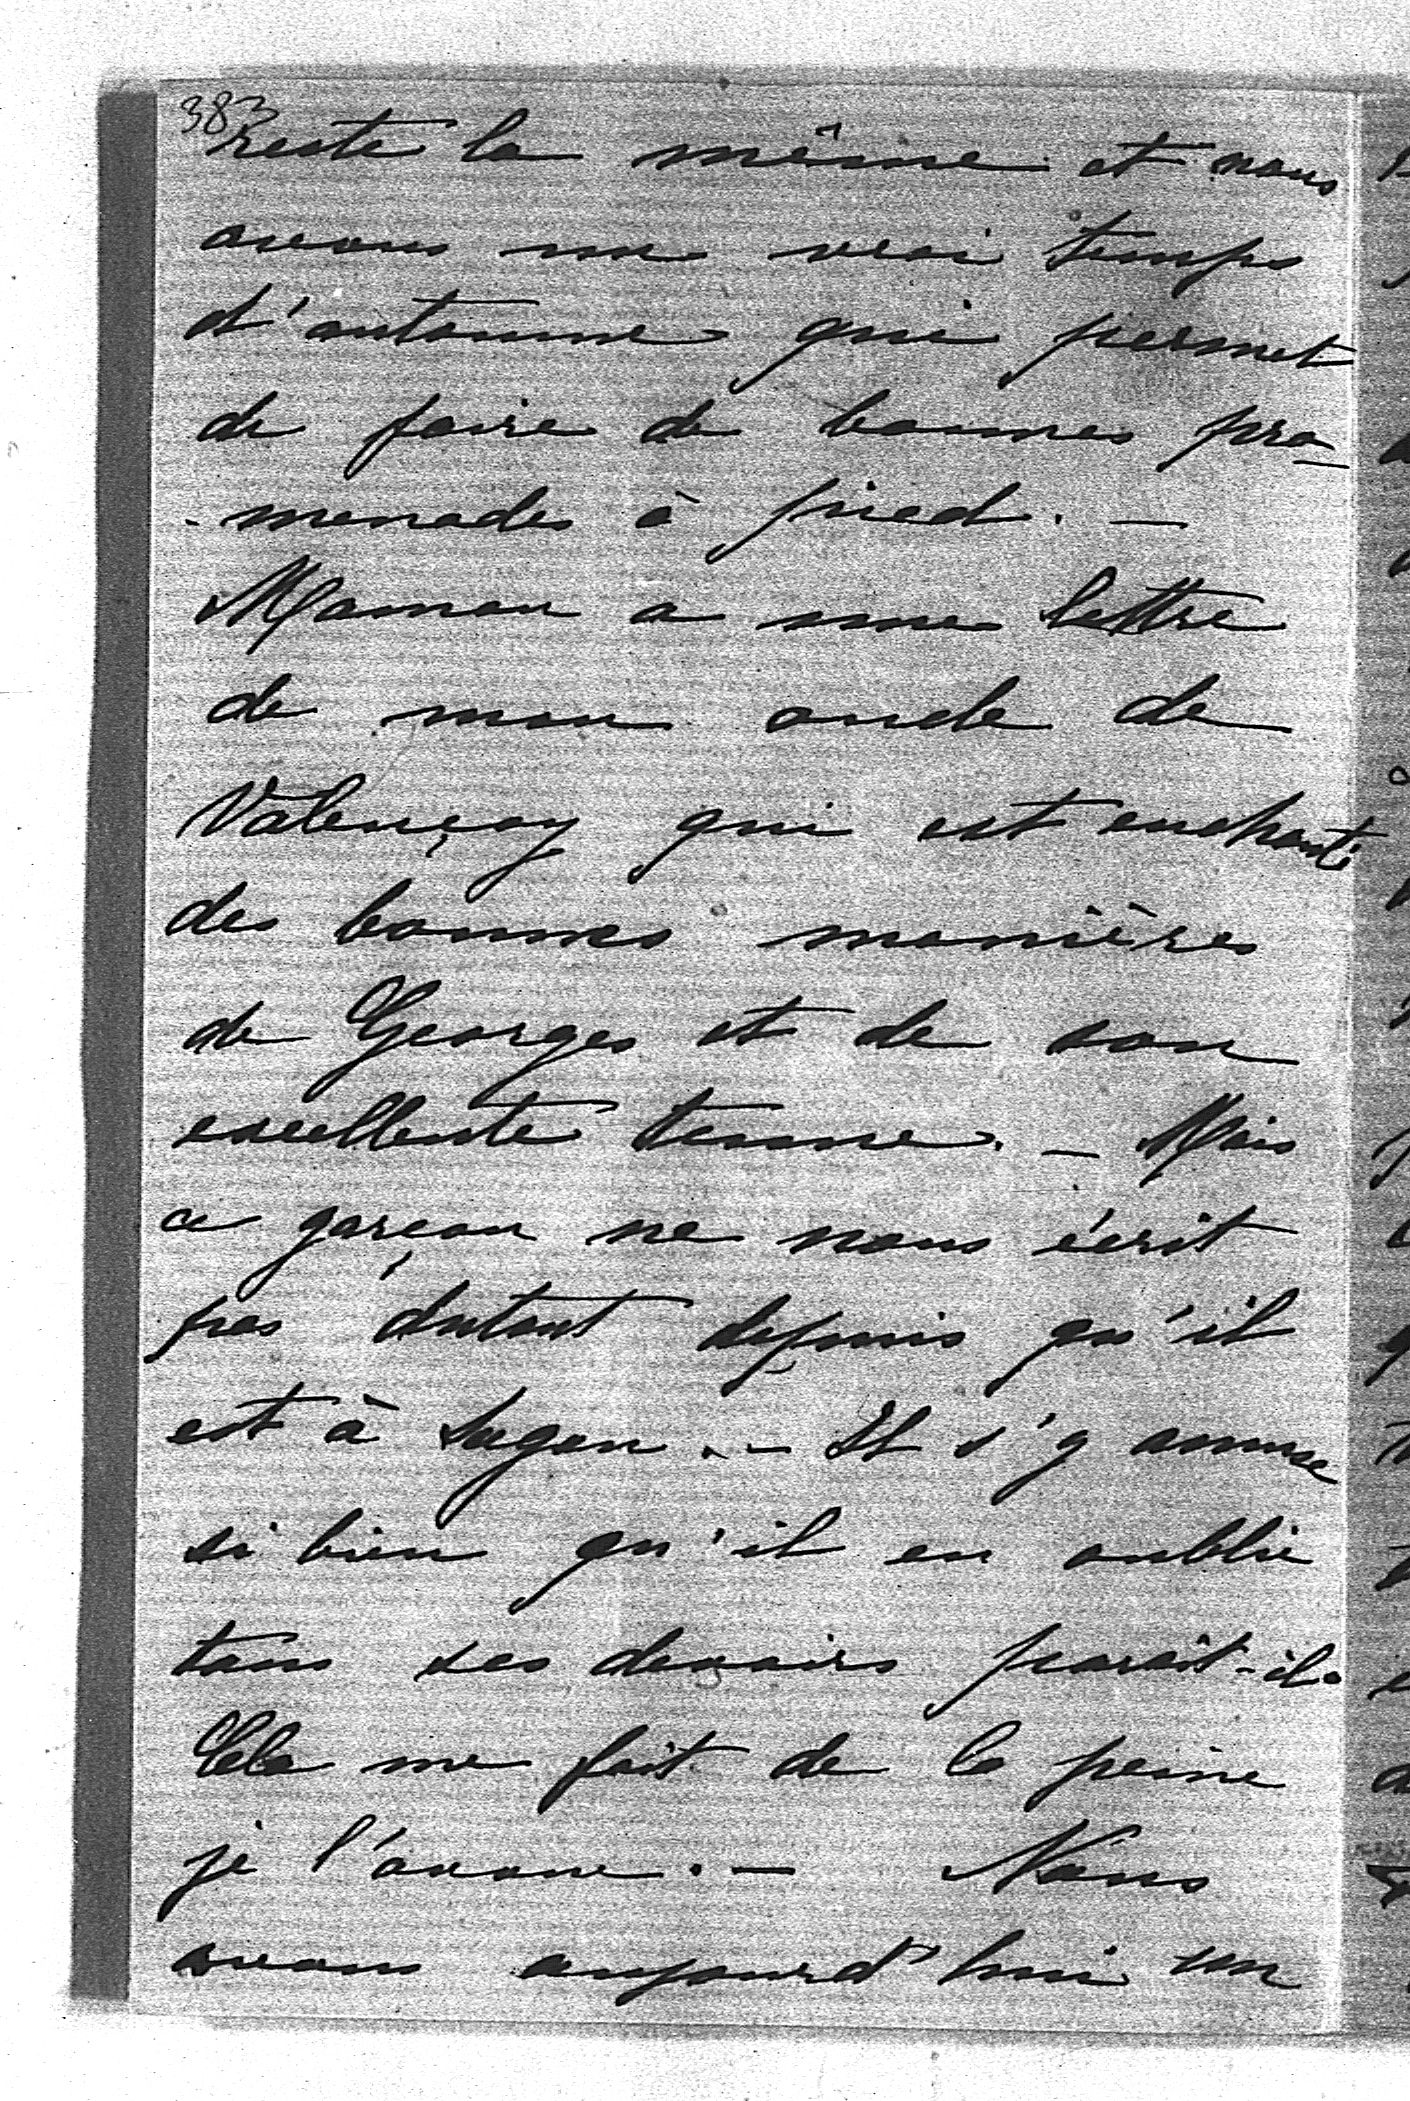 383
reste la même et nous
avons un vrai temps
d'automne qui permet
de faire de bonnes pro-
-menades à pied. -
Maman a une lettre
de mon oncle de
Valençay qui est enchanté
des bonnes manières
de Georges et de son
excellente tenue. - Mais
ce garçon ne nous écrit
pas d'autant depuis qu'il
est à Sagan. - Il s'y amuse
si bien qu'il en oublie
tous ses devoirs parait-il.
Cela me fait de la peine
je l'avoue. - Nous
avons aujourd'hui un